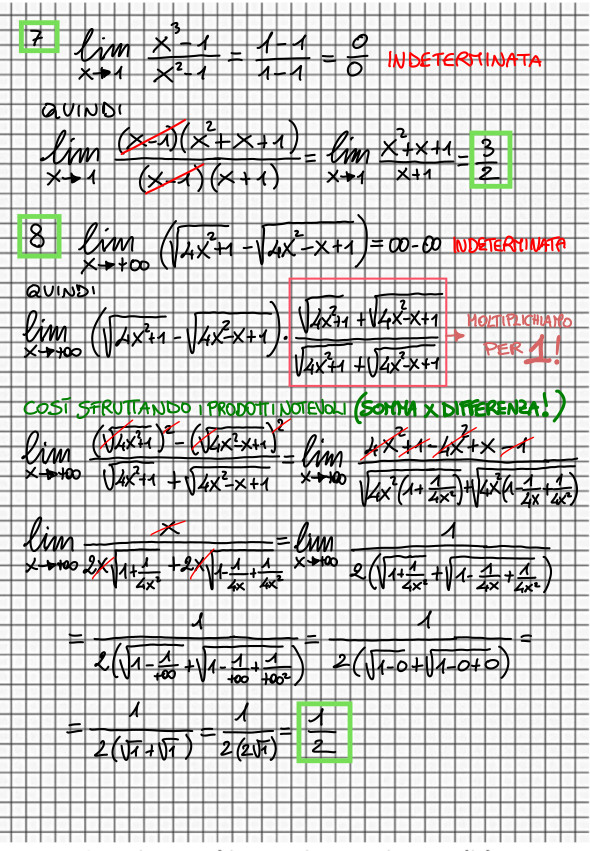 7 lim x→1 (x³-1)/(x²-1) = (1-1)/(1-1) = 0/0 INDETERMINATA
QUINDI
lim x→1 ((x-1)(x²+x+1))/((x-1)(x+1)) = lim x→1 (x²+x+1)/(x+1) = 3/2
8 lim x→+∞ (√(4x²+1) - √(4x²-x+1)) = ∞-∞ INDETERMINATA
QUINDI
lim x→+∞ (√(4x²+1) - √(4x²-x+1)) · (√(4x²+1) + √(4x²-x+1))/(√(4x²+1) + √(4x²-x+1)) → MOLTIPLICHIAMO
PER 1!
COSÌ SFRUTTANDO I PRODOTTI NOTEVOLI (SOMMA X DIFFERENZA!)
lim x→+∞ ((√(4x²+1))² - (√(4x²-x+1))²)/(√(4x²+1) + √(4x²-x+1)) = lim x→+∞ (4x²+1-4x²+x-1)/(√(4x²(1+1/4x²)) + √(4x²(1-1/4x+1/4x²)))
lim x→+∞ x/(2x√(1+1/4x²) + 2x√(1-1/4x+1/4x²)) = lim x→+∞ 1/(2(√(1+1/4x²) + √(1-1/4x+1/4x²)))
= 1/(2(√(1-1/+∞) + √(1-1/+∞+1/+∞²))) = 1/(2(√(1-0) + √(1-0+0))) =
= 1/(2(√1+√1)) = 1/(2(2√1)) = 1/2